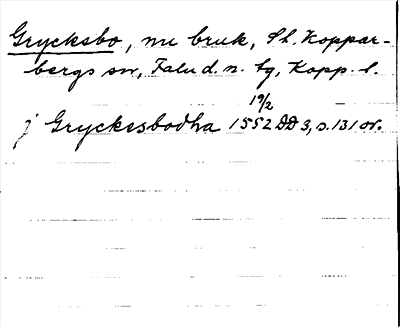 Grycksbo, nu bruk, St. Koppar-
bergs sn, Falu d. n. tg, Kopp. l.
19/2
j Gryckesbodha 1552 DD 3, s. 131 or.